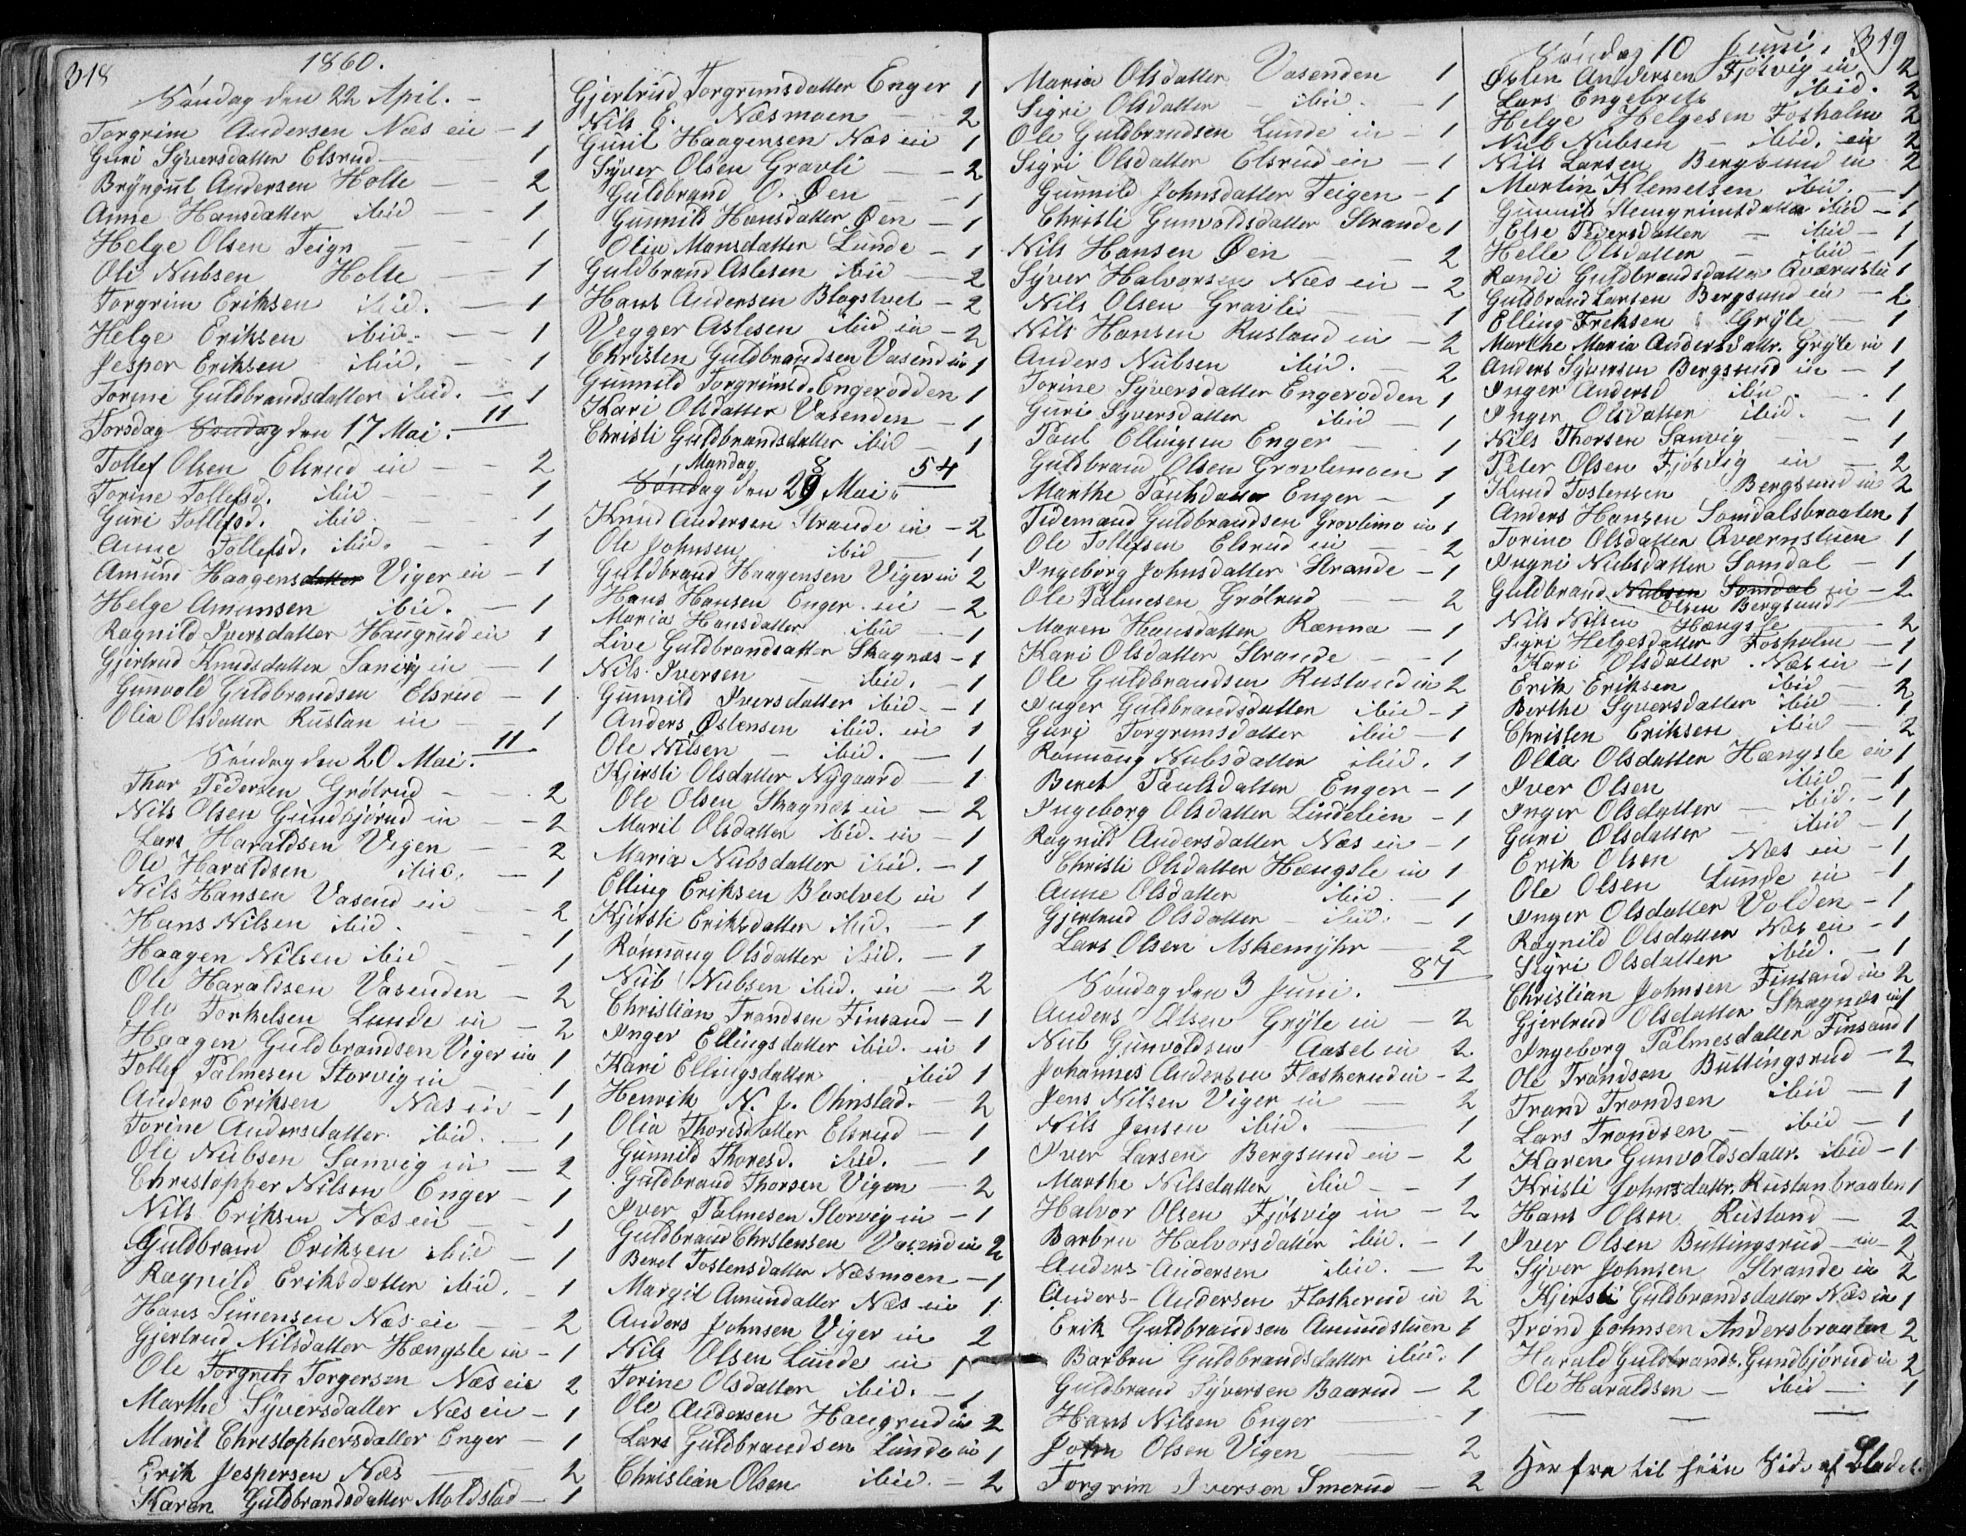 318
1860.
Søndag den 22 April. –
Torgrim Andersen Næs eie – 1
Guri Syversdatter Elsrud – 1
Bryngul Andersen Holte – 2
Anne Hansdatter ibid – 1
Helge Olsen Teign – 1
Ole Nubsen Holte – 1
Torgrim Eriksen ibid. – 1
Helge Eriksen ibid. – 1
Jesper Eriksen ibid. – 1
Torine Guldbrandsdatter ibid. – 1
11
Torsdag Søndag den 17 Mai.
Tollef Olsen Elsrud ei – 2
Torine Tollefsd. ibid – 1
Guri Tollefsd. ibid. – 1
Anne Tollefsd. ibid. – 1
Amund Haagensdatter Viger ei – 1
Helge Amunsen ibid. – 1
Ragnild Iversdatter Haugrud ei 1
Gjertrud Knudsdatter Sanvig ei – 1
Gunvold Guldbrandsen Elsrud – 1
Olia Olsdatter Rustan ei – 1
11
Søndag den 20 Mai.
Thor Pedersen Grølrud – 2
Nils Olsen Gundbjørud ei – 2
Lars Haraldsen Vigen – 2
Ole Haraldsen ibid. – 1
Nils Hansen Vasend ei – 2
Hans Nilsen ibid. – 1
Haagen Nilsen ibid – 1
Ole Haraldsen Vasenden – 2
Ole Torkelsen Lunde ei – 2
Haagen Guldbrandsen Viger ei 1
Tollef Palmesen Storvig ei – 1
Anders Eriksen Næs ei – 1
Torine Andersdatter ibid. – 1
Ole Nubsen Sanvig ei – 2
Christopher Nilsen Enger – 1
Nils Eriksen Næs ei – 1
Guldbrand Eriksen ibid – 1
Ragnild Eriksdatter ibid. – 1
Hans Simensen Næs ei – 2
Gjertrud Nilsdatter Hængsle ei – 1
Ole Torgrets Torgersen Næs eie 2
Marthe Syversdatter Næs ei – 1
Marit Christophersdatter Enger – 1
Erik Jespersen Næs – 2
Karen Guldbrandsdatter Moldstad – 1
Gjertrud Torgrimsdatter Enger 1
Nils E. Næsmoen – 2
Gunil Haagensen Næs ei 1
Syver Olsen Gravli – 2
Guldbrand O. Øen – 1
Gunnild Hansdatter Øen – 1
Olia Monsdatter Lunde – 1
Guldbrand Aslesen ibid – 2
Hans Andersen Blagstvet – 2
Vegger Aslesen ibid ei – 2
Christen Guldbrandsen Vasend ei 1
Gunnild Torgrimsd. Engerodden 1
Kari Olsdatter Vasenden – 1
Christi Guldbrandsdatter ibid – 1
54
Mandag 8
Søndag den 29 Mai.
Knud Andersen Strande ei – 2
Ole Johnsen ibid – 1
Guldbrand Haagensen Viger ei 2
Hans Hansen Enger ei – 2
Maria Hansdatter ibid – 1
Live Guldbrandsdatter Skagnæs – 1
Nils Iversen – ibid. – 1
Gunnild Iversdatter ibid – 1
Anders Østensen ibid. ei 1
Ole Nilsen – ibid. – 1
Kjersti Olsdatter Nygaard – 1
Ole Olsen Skagnæs ei – 2
Marit Olsdatter ibid. ei – 1
Maria Nubsdatter ibid. – 1
Elling Eriksen Bloxtvet ei 1
Kjersti Eriksdatter ibid. – 1
Ronnoug Olsdatter ibid. – 1
Nub Nubsen ibid. ei – 2
Christian Trondsen Finsand – 1
Inger Ellingsdatter ibid. ei 1
Kari Ellingsdatter ibid 1
Henrik N. J. Ohnstad. – 2
Olia Thoresdatter Elsrud – 1
Gunnild Thoresd. ibid. – 1
Guldbrand Thorsen Vigen – 2
Iver Palmesen Storvig ei – 1
Guldbrand Christensen Vasend ei 2
Beret Tostensdatter Næsmoen – 1
Margit Amundatter Næs ei 1
Anders Johnsen Viger ei 2
Nils Olsen Lunde ei 1
Torine Olsdatter ibid. – 1
Ole Andersen Haugrud ei 2
Lars Guldbrandsen Lunde ei 1
Christian Olsen ibid. – 2
Maria Olsdatter Vasenden 1
Sigri Olsdatter – ibid. – 1
Ole Guldbrandsen Lunde ei – 1
Sigri Olsdatter Elsrud ei – 1
Gunnild Johnsdatter Teigen – 1
Christi Gunvoldsdatter Strande 1
Nils Hansen Øen – 2
Syver Halvorsen Næs ei – 2
Nils Olsen Gravli – 1
Nils Hansen Rustand ei – 2
Anders Nubsen ibid. – 2
Torine Syversdatter Engerodden 1
Guri Syversdatter ibid – 1
Paul Ellingsen Enger – 1
Guldbrand Olsen Gravlemoen 1
Marthe Paulsdatter Enger – 1
Tidemand Guldbrandsen Gravlimo ei 1
Ole Tollefsen Elsrud ei – 2
Ingeborg Johnsdatter Strande – 1
Ole Palmesen Grølrud 2
Maren Hansdatter Rænna – 1
Kari Olsdatter Strande – 1
Ole Guldbrandsen Rustand ei 2
Inger Guldbrandsdatter ibid – 1
Guri Torgrimsdatter ibid – 1
Ronnoug Nubsdatter ibid. 1
Beret Paulsdatter Enger – 1
Ingeborg Olsdatter Lindelien – 1
Ragnild Andersdatter Næs ei – 1
Christi Olsdatter Hængsle ei 1
Anne Olsdatter ibid. – 1
Gjertrud Olsdatter – ibid. – 1
Lars Olsen Askemyhr – 2
87
Søndag den 3 Juni.
Anders Olsen Gryte ei – 2
Nub Gunvoldsen Aasel ei 2
Johannes Andersen Flaskerud ei – 2
Jens Nilsen Viger ei – 2
Nils Jensen ibid. – 1
Iver Larsen Bergsund ei – 2
Marthe Nilsdatter ibid – 1
Halvor Olsen Fjøsvig ei – 2
Barbru Halvorsdatter ibid. – 1
Anders Andersen ibid. – 2
Anders Andersen Flaskerud ei 2
Erik Guldbrandsen Amundstuen 1
Barbru Guldbrandsdatter ibid. 1
Guldbrand Syversen Baarud – 2
Hans Nilsen Enger 1
John Olsen Vigen – 2
Torgrim Iversen Smerud – 2
319
Søndag 10 Juni.
Østen Andersen Fjøsvig ei 2
Lars Engebrets ibid. 2
Helge Helgesen Fosholm 2
Nub Nubsen – ibid. ei 2
Nils Larsen Bergsund ei 2
Martin Klemetsen ibid. – 1
Gunnild Stengrimsdatter ibid – 1
Else Pedersdatter – ibid – 1
Helle Olsdatter – ibid – 1
Randi Guldbrandsdatter Qværnstu 1
Guldbrand Larsen Bergsund ei – 2
Elling Freksen Gryte – 1
Marthe Maria Andersdattr. Gryte ei 1
Anders Syversen Bergsund ei – 1
Inger Andersd ibid. – 1
Inger Olsdatter ibid. – 1
Nils Thorsen Sanvig – 1
Peter Olsen Fjøsvig ei – 2
Knud Tostensen Bergsund ei 2
Anders Hansen Somdalsbraaten 1
Torine Olsdatter Qværnstuen 1
Ingri Nubsdatter Somdal – 1
Guldbrand Nubsen Somdal ei – 2
Olsen Bergsund
Nils Nilsen Hængsle – 2
Sigri Helgesdatter Fosholm – 1
Kari Olsdatter Næs ei – 1
Erik Eriksen ibid – 2
Berthe Syversdatter ibid – 1
Christen Eriksen ibid – 2
Olia Olsdatter Hængsle ei 1
Iver Olsen ibid – 1
Inger Olsdatter – ibid. – 1
Guri Olsdatter – ibid – 1
Erik Olsen Næs ei – 1
Ole Olsen Lunde ei – 1
Inger Olsdatter Volden – 1
Ragnild Olsdatter Næs ei – 1
Sigri Olsdatter ibid. – 1
Christian Johnsen Finsand ei 2
Gjertrud Olsdatter Skagnæs ei 1
Ingeborg Palmesdatter Finsand 1
Ole Trondsen Buttingsrud – 2
Trond Trondsen ibid – 1
Lars Trondsen – ibid – 1
Karen Gunvoldsdattr. ibid – 1
Kristi Johnsdattr. Rustanbraaten 1
Hans Olsen Rustand – 2
Iver Olsen Buttingsrud – ei – 2
Syver Johnsen Strande ei 2
Kjersti Guldbrandsdatter Næs ei 1
Trond Johnsen Andersbraaten 2
Harald Guldbrands. Gundbjørud ei 2
Ole Haraldsen – ibid – 1
Her fra til hiin Side af Bladet.